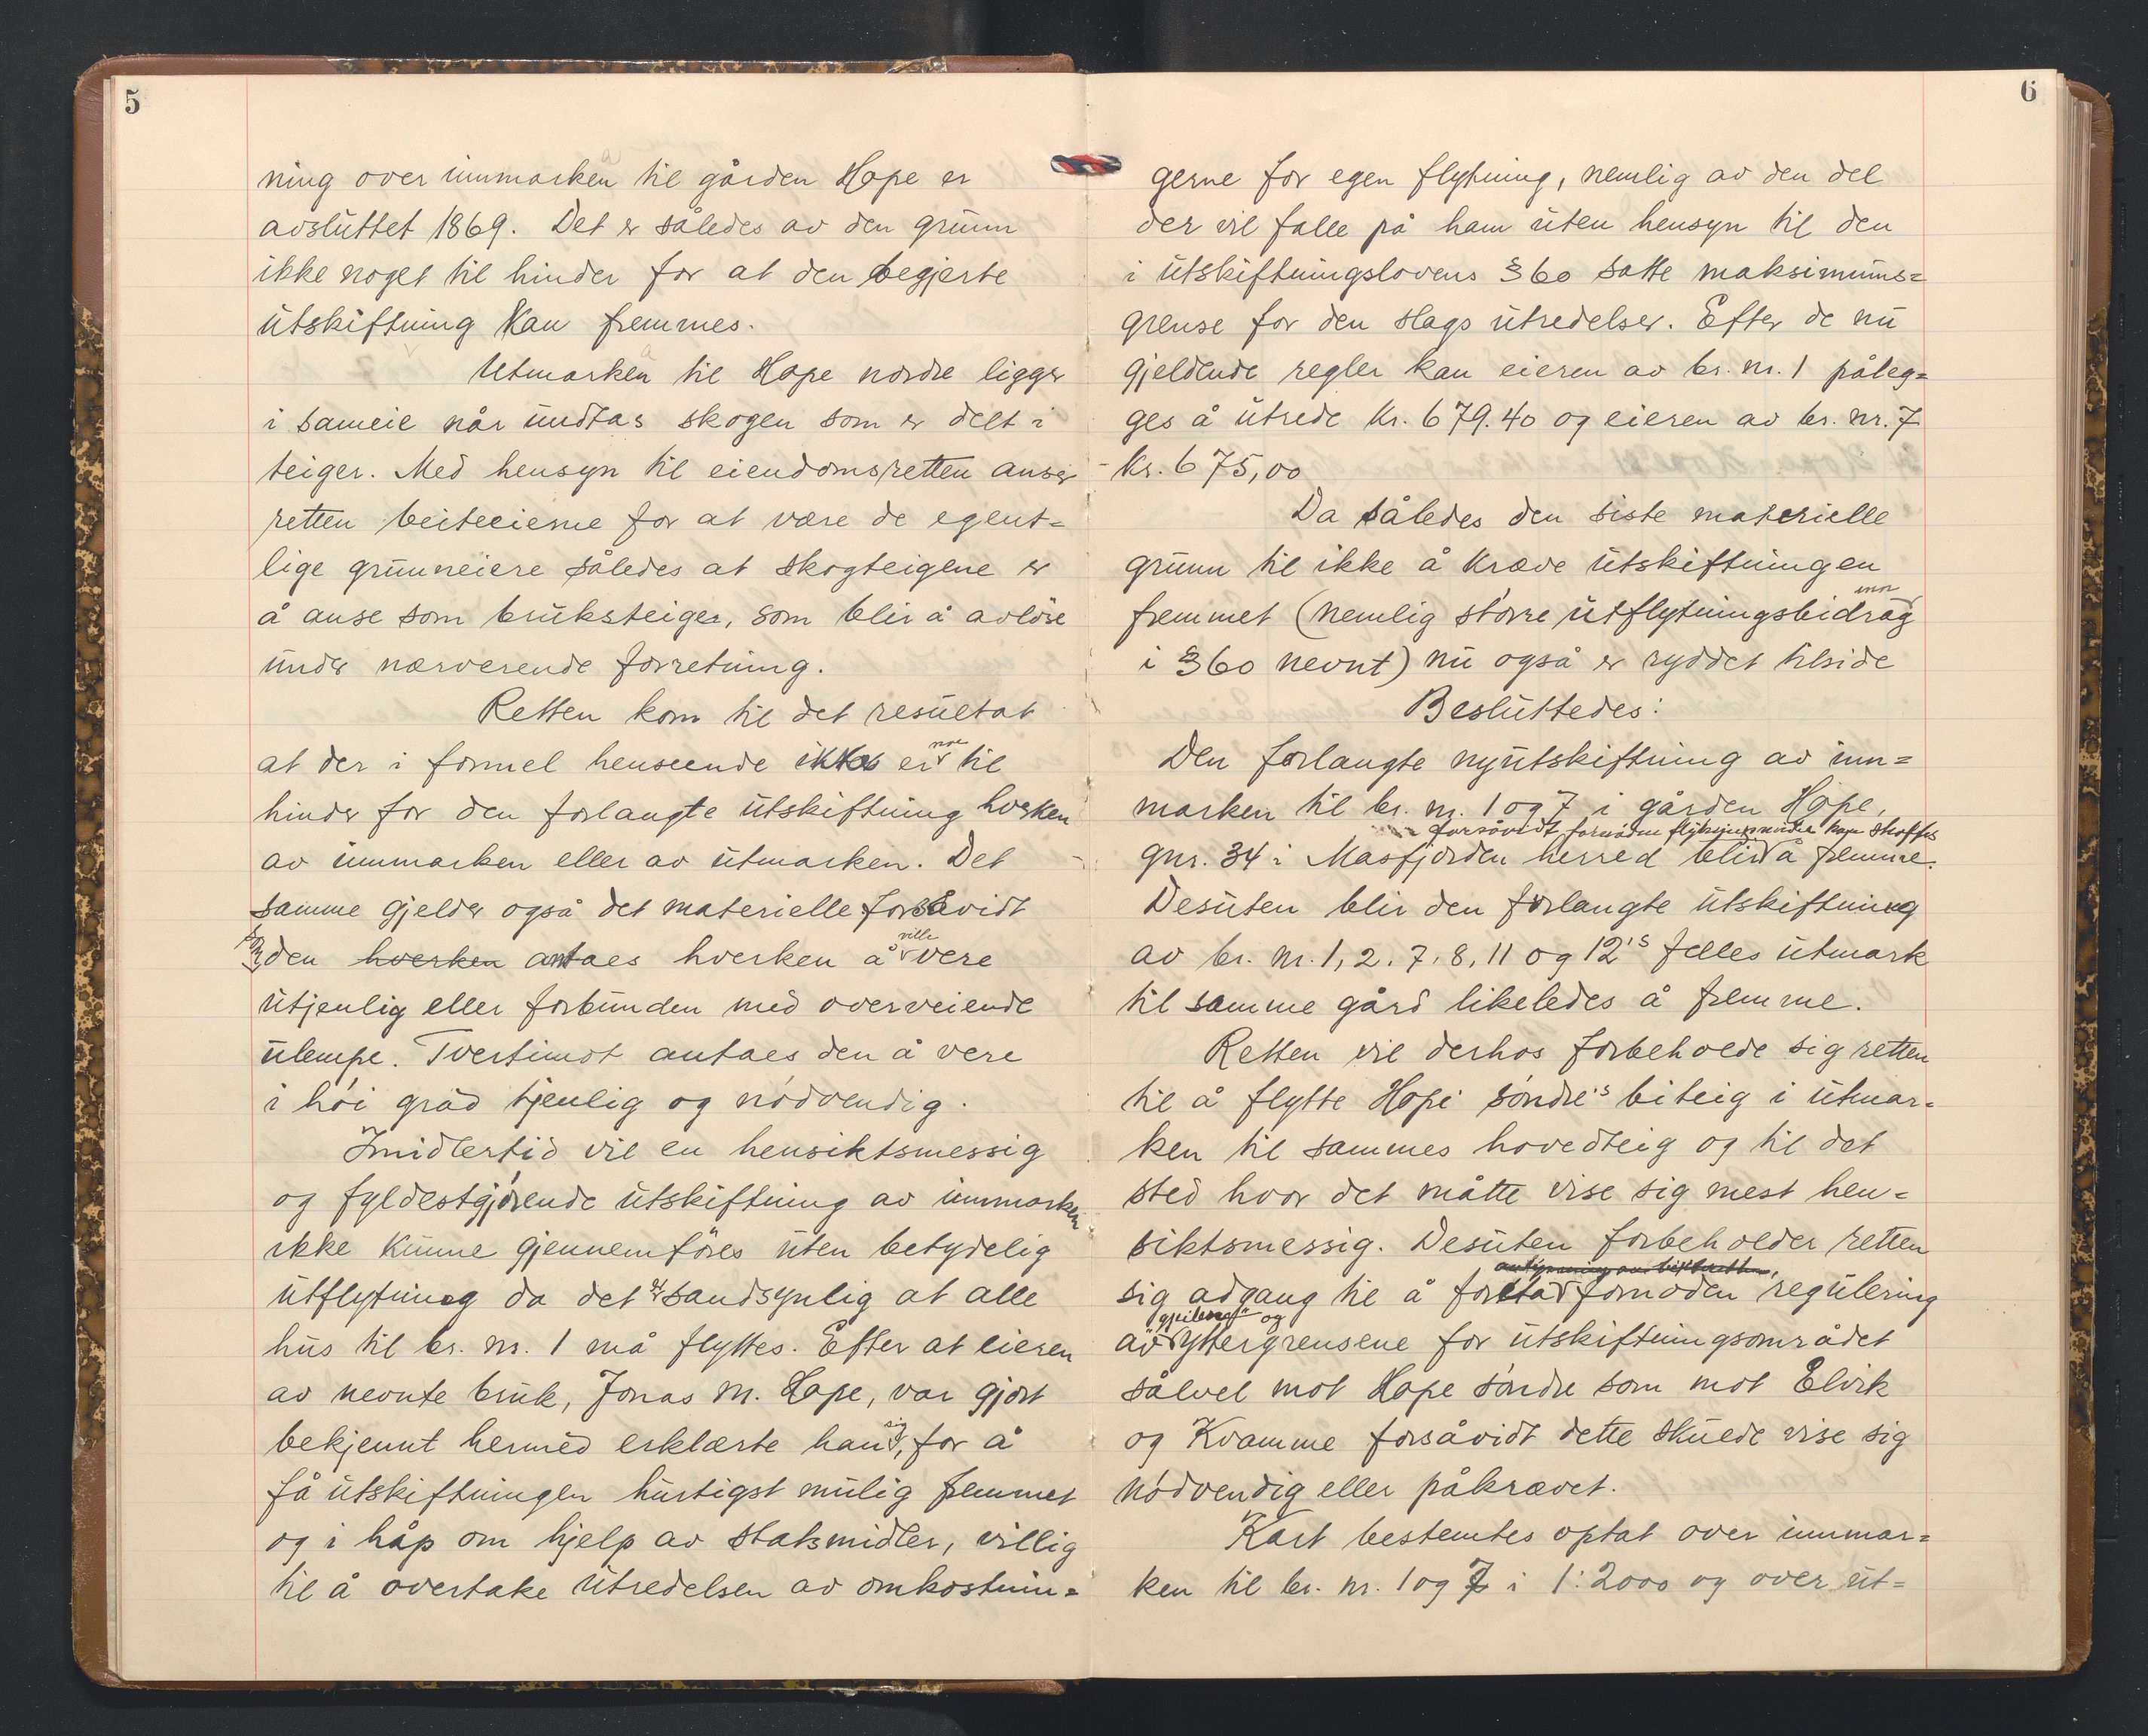 5
ning over innmarken til gården Hope er
avsluttet 1869. Det er således av den grunn
ikke noget til hinder for at den begjerte
utskiftning kan fremmes.
Utmarken til Hope nordre ligger
i sameie når undtas skogen som er delt i
teiger. Med hensyn til eiendomsretten anser
retten beiteeierne for at være de egent=
lige grunneiere således at skogteigene er
å anse som bruksteiger, som blir å avløse
under nærverende forretning.
Retten kom til det resultat
at der i formel henseende ikke er noe til
hinder for den forlangte utskiftning hverken
av innmarken eller av utmarken. Det
samme gjelder også det materielle forsåvidt
som den hverken antaes hverken å ville vere
utjenlig eller forbunden med overveiende
ulempe. Tvertimot antaes den å vere
i høi grad tjenlig og nødvendig.
Imidlertid vil en hensiktsmessig
og fyldestgjørende utskiftning av innmarken
ikke kunne gjennemføres uten betydelig
utflytning da det er sandsynlig at alle
hus til br. nr. 1 må flyttes. Efter at eieren
av nevnte bruk, Jonas M. Hope, var gjort
bekjennt hermed erklærte han sig, for å
få utskiftningen hurtigst mulig fremmet
og i håp om hjelp av statsmidler, villig
til å overtake utredelsen av omkostnin=
6
gerne for egen flytning, nemlig av den del
der vil falle på ham uten hensyn til den
i utskiftningslovens §60 satte maksimums=
grense for den slags utredelser. Efter de nu
gjeldende regler kan eieren av br. nr. 1 påleg=
ges å utrede kr. 679.40 og eieren av br. nr. 7
kr. 675,00
Da således den siste materielle
grunn til ikke å kræve utskiftningen
fremmet (nemlig større utflytningsbidrag enn
i §60 nevnt) nu også er ryddet tilside
Besluttedes:
Den forlangte nyutskiftning av inn=
marken til br. nr. 1 og 7 i gården Hope,
forsåvidt fornøden flytningsmidler kan skaffes
gnr. 34 i Masfjorden herred blir å fremme.
Desuten blir den forlangte utskiftning
av br. nr. 1, 2, 7, 8, 11 og 12's felles utmark
til samme gård likeledes å fremme.
Retten vil derhos forbeholde sig retten
til å flytte Hope søndre's biteig i utmar=
ken til sammes hovedteig og til det
sted hvor det måtte vise sig mest hen=
siktsmessig. Desuten forbeholder retten
sig adgang til å foreta fornøden regulering
og
av yttergrensene for utskiftningsområdet
såvel mot Hope søndre som mot Elvik
og Kvamme forsåvidt dette skulde vise sig
nødvendig eller påkrævet.
Kart bestemtes optat over innmar=
ken til br. nr. 1 og 7 i 1:2000 og over ut=